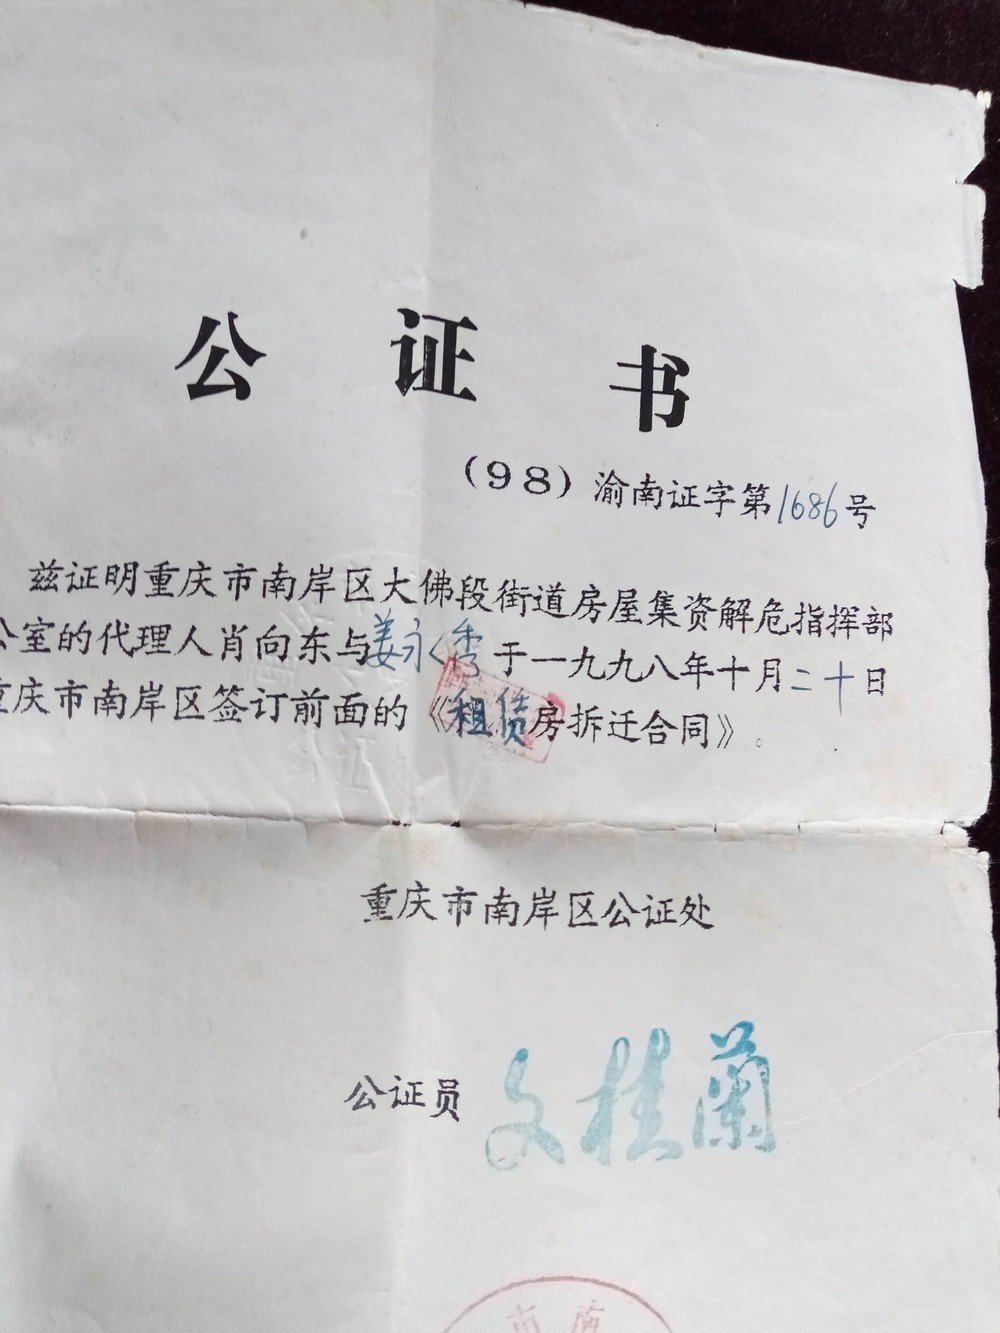 公证书
(98)渝南证字第1686号
兹证明重庆市南岸区大佛段街道房屋集资解危指挥部
公室的代理人肖向东与姜永秀于一九九八年十月二十日
重庆市南岸区签订前面的《租赁房拆迁合同》。
重庆市南岸区公证处
公证员 文桂蘭